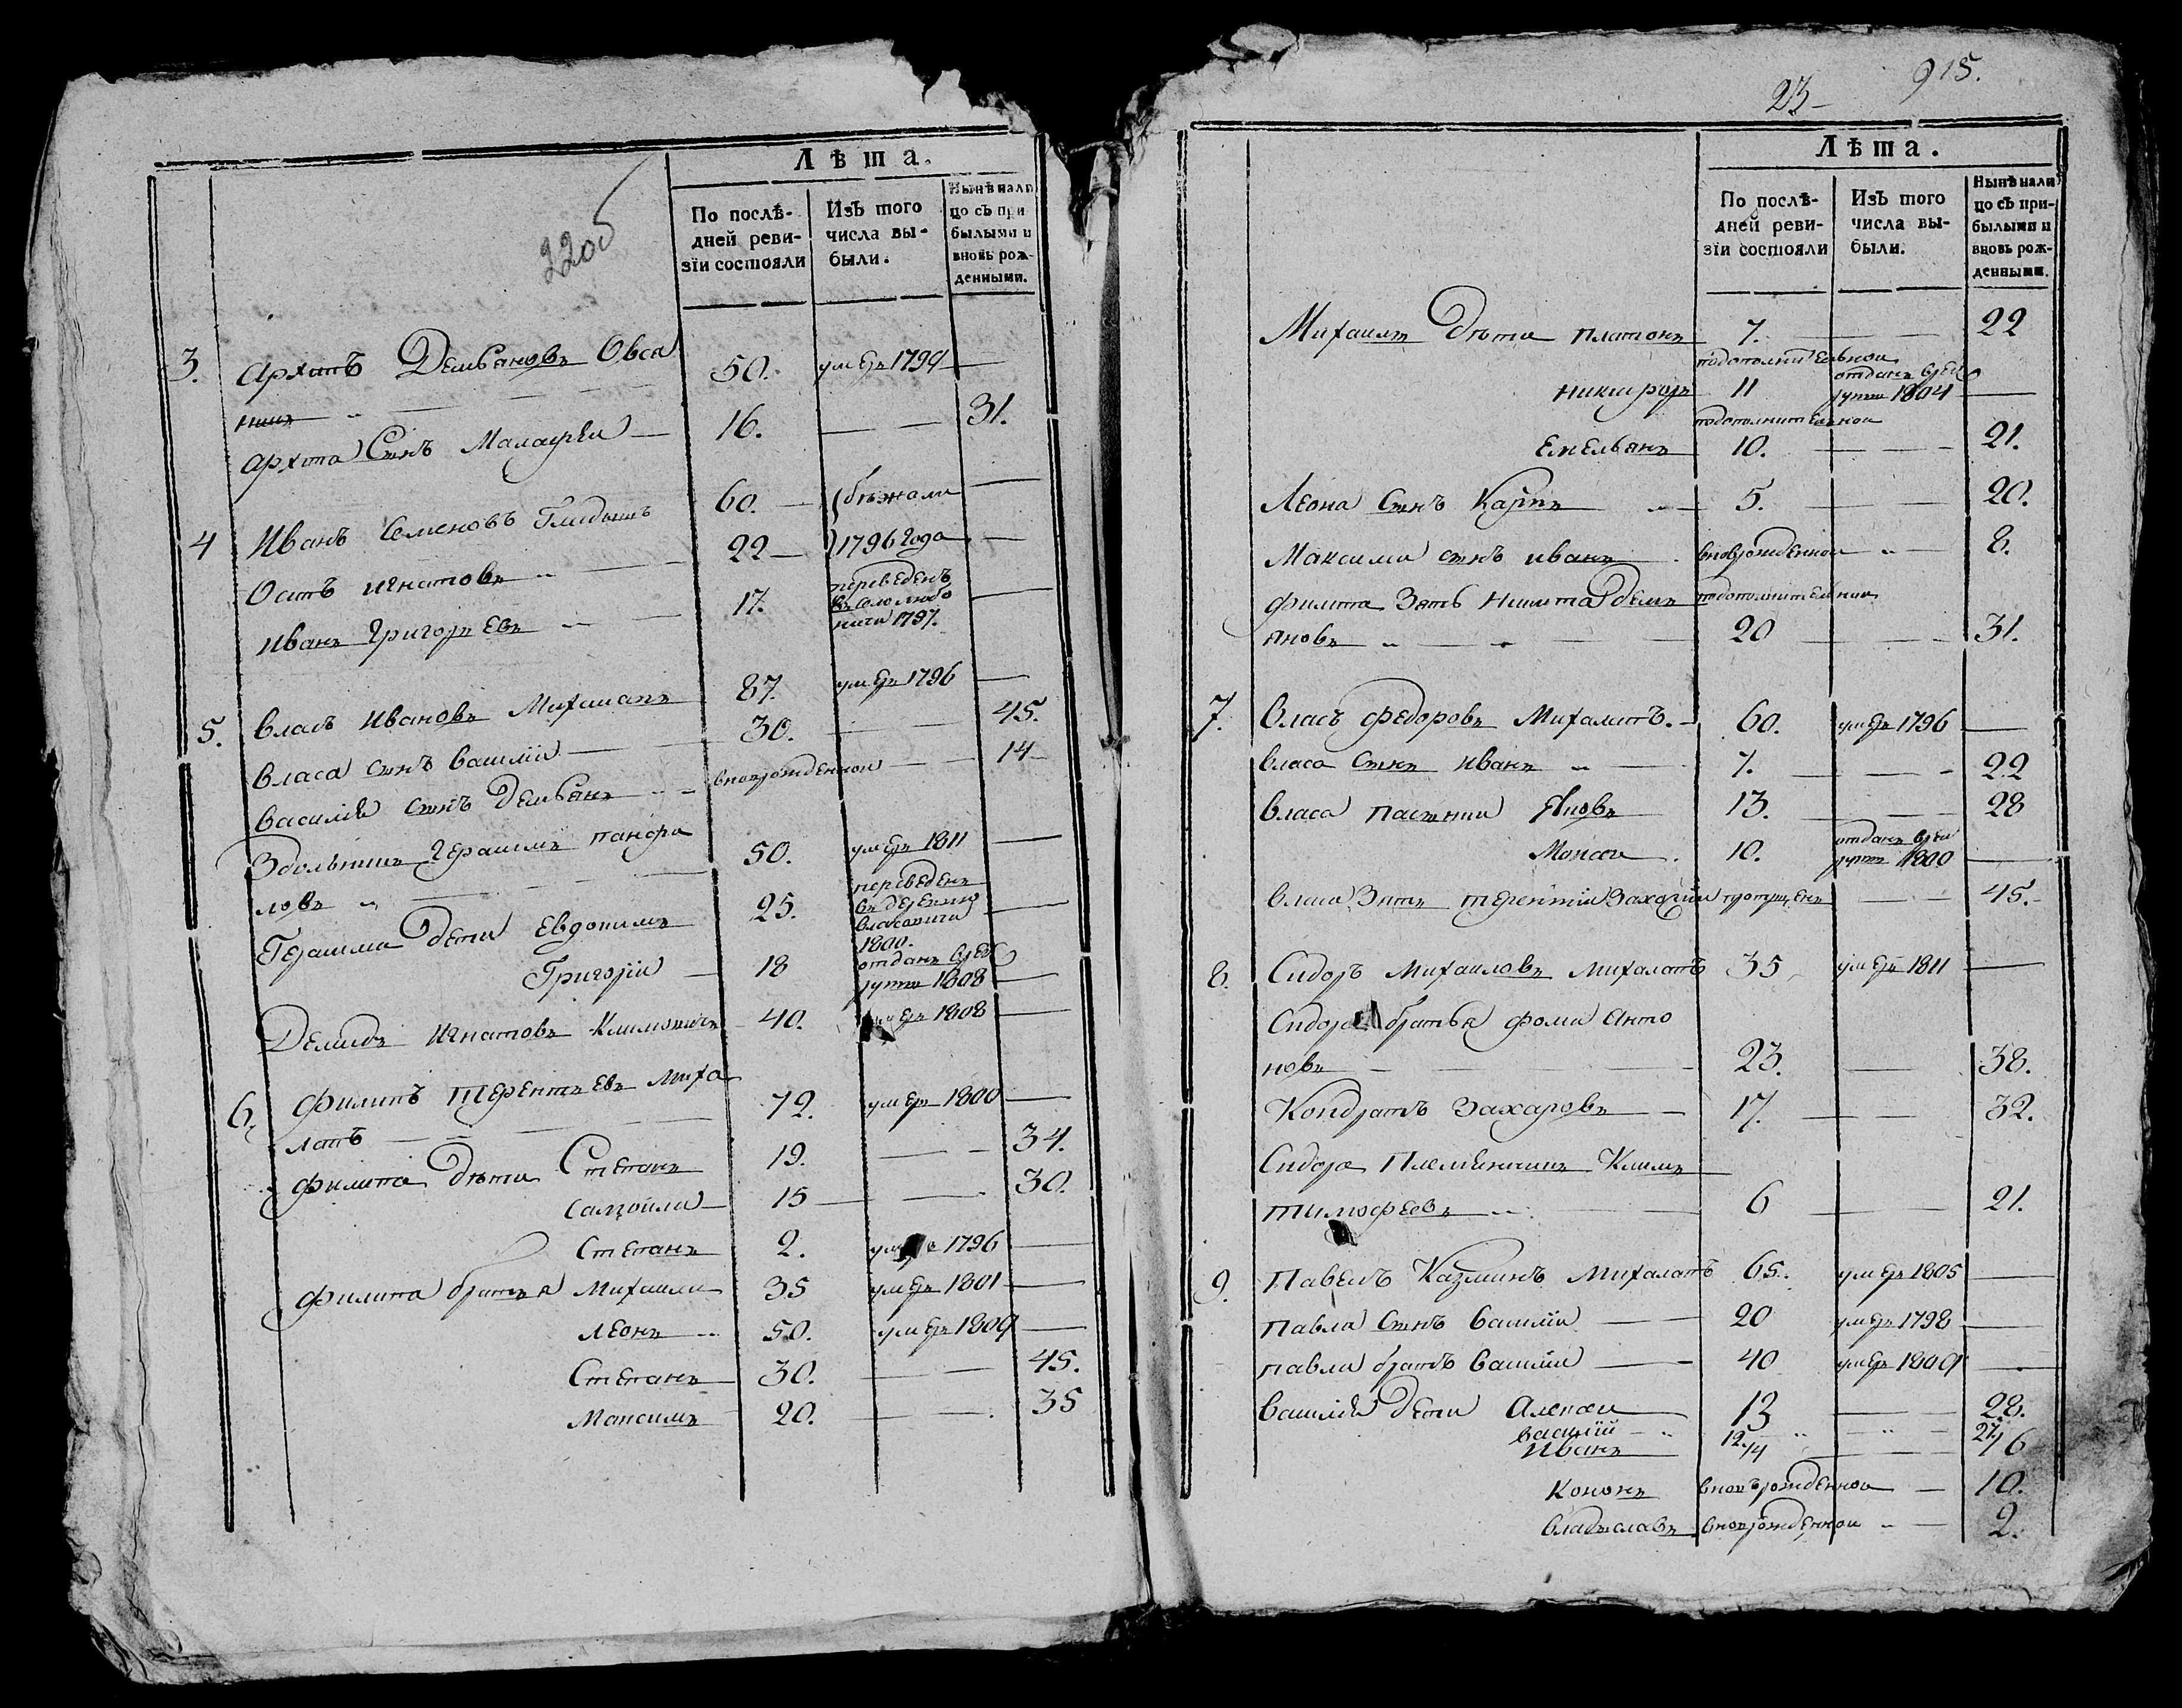 22об
Лѣта.
По послѣ-
дней реви-
зіи состояли
Изъ того
числа вы-
были.
Нынѣ нали
цо съ при
былыми и
вновь рож-
денными.
3. Архипъ Демьяновъ Овса 50. умеръ 1799 —
нинъ
Архипа Сынъ Малафеи — 16. — 31.
4 Иванъ Семеновъ 60. — бѣжали —
Осипъ Игнатовъ 22 — 1796 Года —
Иванъ Григорьевъ 17. переведенъ
1797.
5. Власъ Ивановъ 87. умеръ 1796 —
Власа сынъ Василіи — 30. — 45.
Василія сынъ Демьянъ вновьрожденнои — 14
Герасимъ Панфи 50. умеръ 1811 —
ловъ
Герасима Дети Евдокимъ 25. переведенъ
въ деревню
1800.
Григоріи — 18 отданъ врек
руты 1808 —
Демидъ Игнатовъ Климовичъ 40. умеръ 1808 —
6. Филипъ Терентьевъ Миха 72. умеръ 1800 —
лапъ
Филипа Дѣти Степанъ 19. — 34.
Самоила 15 — 30.
Степанъ 2. 1796 —
Филипа братья Михаила 35 умеръ 1801 —
Леонъ 50. умеръ 1809 —
Степанъ 30. — 45.
Максимъ 20. — 35
23 915.
Лѣта.
По послѣ-
дней реви-
зіи состояли
Изъ того
числа вы-
были.
Нынѣ нали
цо съ при-
былыми и
вновь рож-
денными.
Михаила Дѣти Платонъ 7. — 22
подополнительнои
Никифоръ 11 отданъ врек
руты 1804 —
подополнительнои
Емельянъ 10. — 21.
Леона Сынъ Карпъ 5. — 20.
Максима сынъ Иванъ вновьрожденнои — 8.
Филипа Зять Никита Демь подополнительнои
яновъ 20 — 31.
7. Власъ Федоровъ Михалапъ. 60. умеръ 1796 —
Власа Сынъ Иванъ 7. — 22
Власа Пасынки Яковъ 13. — 28
10. отданъ врек
руты 1800 —
Власа Зять Терентіи пропущенъ — 45.
8. Сидоръ Михаиловъ Михалапъ 35 умеръ 1811 —
Сидора братья Фома Анто
новъ — 23. — 38.
Кондратъ Захаровъ 17. — 32.
Сидора Племянникъ Климъ
Тимофеевъ 6 — 21.
9. Павелъ Казминъ Михалапъ 65. умеръ 1805 —
Павла Сынъ Василіи 20 умеръ 1798 —
Павла братъ Василіи 40 умеръ 1809 —
Василія Дети Алексеи 13 — 28.
Василій 12. — 27.
Иванъ 1/4 — 16
Кононъ вновьрожденнои — 10.
Владиславъ вновьрожденнои — 2.